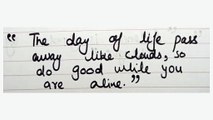 “ The day of life pass
away like clouds, so
do good while you
are alive.”